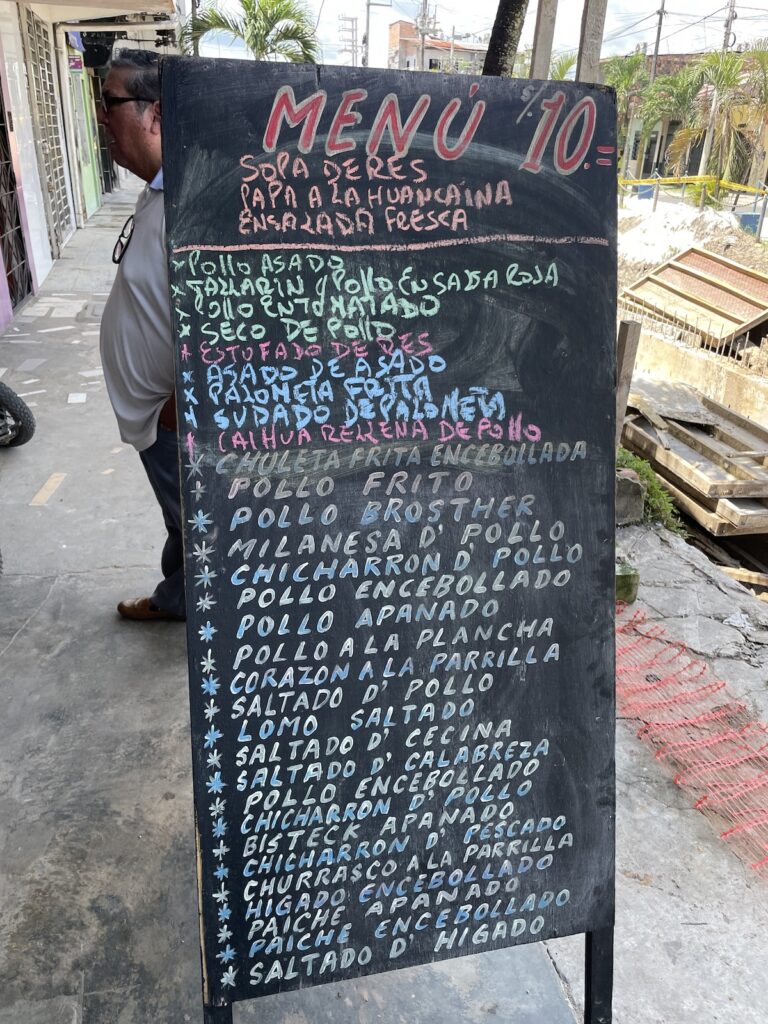 MENÚ S/. 10.=
SOPA DE RES
PAPA A LA HUANCAINA
ENSALADA FRESCA
* POLLO ASADO
* TALLARIN y POLLO EN SALSA ROJA
* POLLO ENTOMATADO
* SECO DE POLLO
* ESTUFADO DE RES
* ASADO DE ASADO
* PALOMETA FRITA
* SUDADO DE PALOMETA
* CAIHUA RELLENA DE POLLO
* CHULETA FRITA ENCEBOLLADA
* POLLO FRITO
* POLLO BROSTHER
* MILANESA D' POLLO
* CHICHARRON D' POLLO
* POLLO ENCEBOLLADO
* POLLO APANADO
* POLLO A LA PLANCHA
* CORAZON A LA PARRILLA
* SALTADO D' POLLO
* LOMO SALTADO
* SALTADO D' CECINA
* SALTADO D' CALABREZA
* POLLO ENCEBOLLADO
* CHICHARRON D' POLLO
* BISTECK APANADO
* CHICHARRON D' PESCADO
* CHURRASCO A LA PARRILLA
* HIGADO ENCEBOLLADO
* PAICHE APANADO
* PAICHE ENCEBOLLADO
* SALTADO D' HIGADO